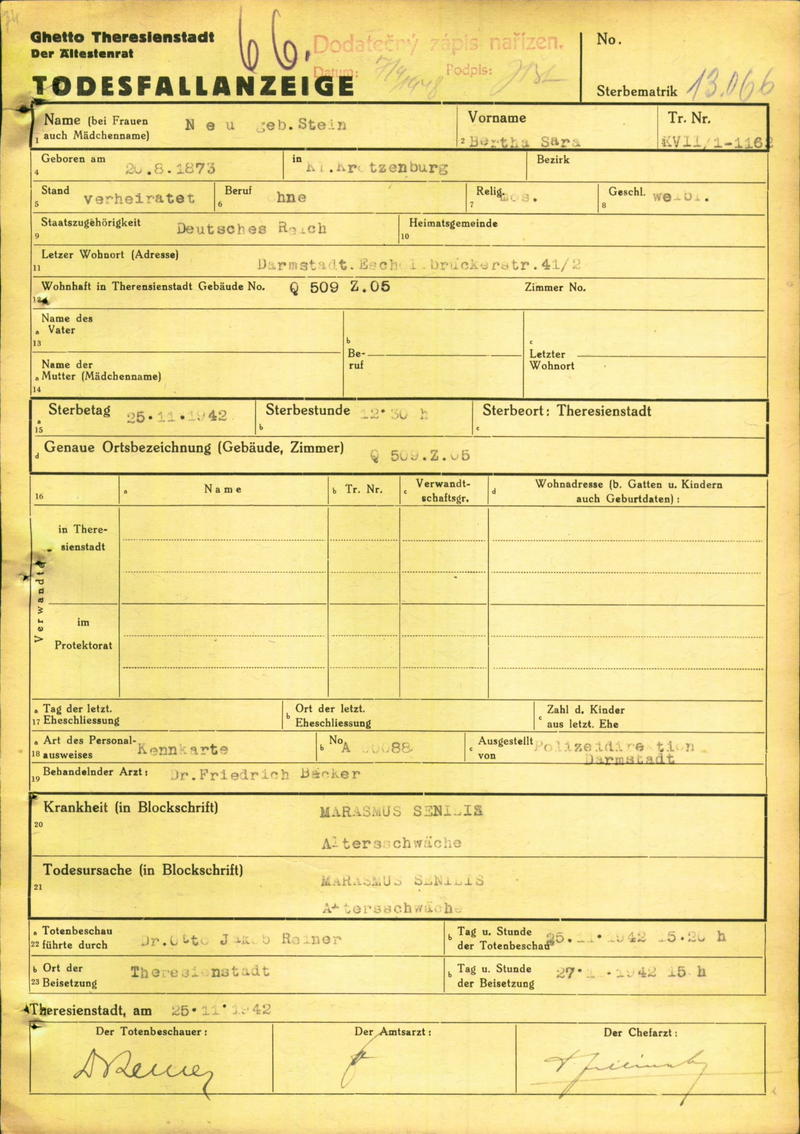 66,
Ghetto Theresienstadt
Der Ältestenrat
TODESFALLANZEIGE
Dodatečný zápis nařízen.
Datum: 7/9 1948 Podpis:
No.
Sterbematrik 13.066
Name (bei Frauen auch Mädchenname) Neu geb.Stein
1
Vorname
2 Bertha Sara
Tr. Nr.
XVII/1-116
Geboren am
4 .8.1873
in
Bezirk
Stand
5 verheiratet
Beruf
6
Relig.
7
Geschl.
8
Staatszugehörigkeit
9 Deutsches Reich
Heimatsgemeinde
10
Letzer Wohnort (Adresse)
11 Darmstadt. 41/2
Wohnhaft in Therensienstadt Gebäude No. Q 509 Z.05 Zimmer No.
Name des
a Vater
13
Name der
a Mutter (Mädchenname)
14
b
Be-
ruf
c
Letzter
Wohnort
Sterbetag 25.11.1942
a
15
Sterbestunde 12.30 h
b
Sterbeort: Theresienstadt
c
Genaue Ortsbezeichnung (Gebäude, Zimmer)
d Q 509.Z.05
16
a Name
b Tr. Nr.
c Verwandt-
schaftsgr.
d Wohnadresse (b. Gatten u. Kindern
auch Geburtdaten) :
Verwandte
in There-
sienstadt
im
Protektorat
a Tag der letzt.
17 Eheschliessung
b Ort der letzt.
Eheschliessung
c Zahl d. Kinder
aus letzt. Ehe
a Art des Personal-
18 ausweises Kennkarte
b No. A
c Ausgestellt
von Polizeidirektion
Darmstadt
Behandelnder Arzt:
19 Dr.Friedrich Bäcker
Krankheit (in Blockschrift)
20
MARASMUS SENILIS
Altersschwäche
Todesursache (in Blockschrift)
21
MARASMUS SENILIS
Altersschwäche
a Totenbeschau
22 führte durch Dr.Otto Jakob Reiner
b Tag u. Stunde
der Totenbeschau 25.11.1942 h
b Ort der
23 Beisetzung Theresienstadt
b Tag u. Stunde
der Beisetzung 1942 15 h
Theresienstadt, am 25.11.1942
Der Totenbeschauer:
Der Amtsarzt:
Der Chefarzt: